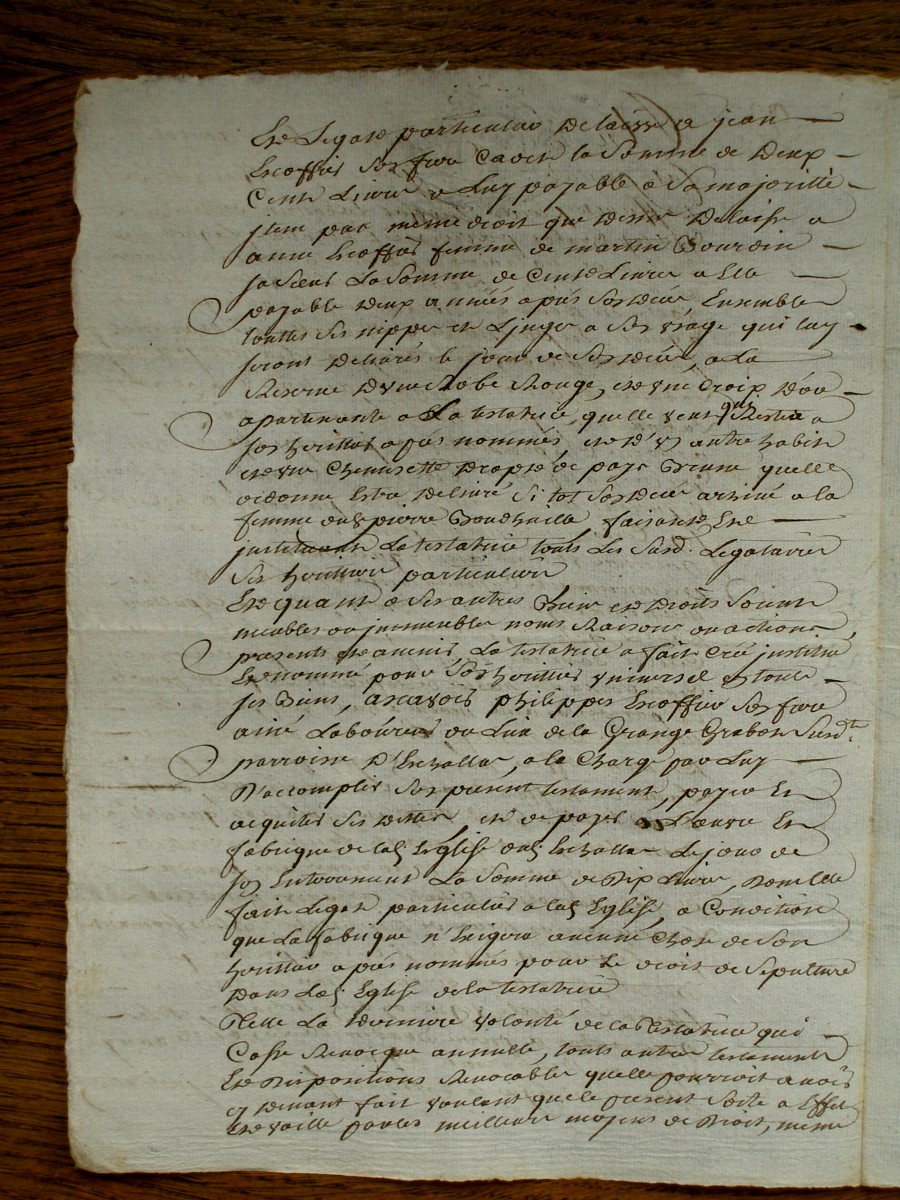 et Legat particulier delaisse a jean
Escoffier son frere cadet la somme de deux
Cents Livres a Luy payable a sa majoritté
jtem par même droit que dessus delaisse a
anne Escoffier femme de martin Bourdin
sa sœur La somme de Cent Livres a Elle
payable deux années après son decès Ensemble
toutes ses nippes et Linges a son usage qui luy
seront delivrés le jour de son decès, a La
Reserve d'une Robe Rouge, et d'une Croix d'or
apartenante a La testatrice, quelle veut que Reste a
son heritier après nommés et d'un autre habit
et une Chemisette drap de pays Brune quelle
ordonne Estre delivré si tot son decès arrivé a la
femme dud pierre faisant et
jnstituant La testatrice touts Les susd. Legataires
ses heritiers particuliers
Et quant a ses autres Biens et droits soient
meubles ou jmmeubles noms Raisons ou actions
presents et avenir La testatrice a fait Créé jnstitué
Et nommé pour son heritier universel toute
ses Biens, ascavoir philippes Escoffier son frere
ainé Laboureur au Lieu de la Grange susdte
parroisse d'Echallas, a la Charge par Luy
D'accomplir son present testament, payer Et
acquiter ses dettes, et de payer a L'œuvre Et
fabrique de lad Eglise dud Echallas Le jour de
son Enterrement La somme de Dix Livres, dont Elle
fait Legat particulier a lad Eglise, a Condition
que La fabrique n'Exigera aucune Chose de son
heritier après nommés pour Le droit de sepulture
Dans Lad Eglise de la testatrice
Telle La derniere volonté de la Testatrice qui
Casse Revocque annulle, touts autres testaments
Et Dispositions Revocables quelle pourroit avoir
cy devant fait voulant que le present sorte a Effet
Et vaille par les meilleurs moyens de Droit, même